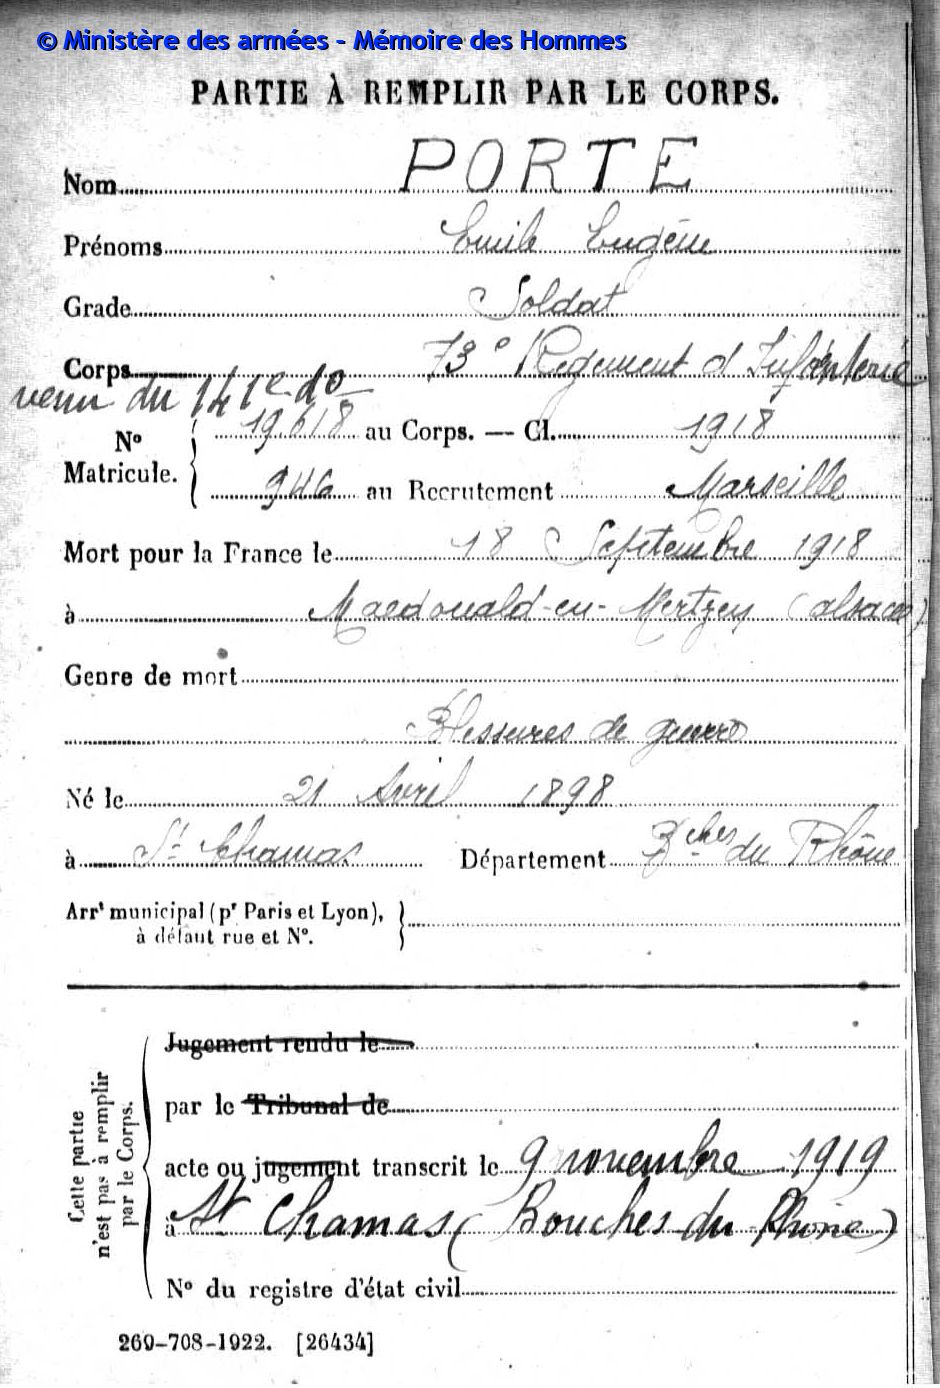 © Ministère des armées - Mémoire des Hommes
PARTIE À REMPLIR PAR LE CORPS.
Nom PORTE
Prénoms Emile Eugène
Grade Soldat
Corps 73e Régiment d'Infanterie
venu du 141e do
No Matricule. { 19618 au Corps. — Cl. 1918
946 au Recrutement Marseille
Mort pour la France le 18 Septembre 1918
à Macdonald-en-Mertzen (Alsace)
Genre de mort
Blessures de guerre
Né le 21 Avril 1898
à St Chamas Département Bches du Rhône
Arrt municipal (pr Paris et Lyon), }
à défaut rue et No.
Cette partie n'est pas à remplir par le Corps.
Jugement rendu le
par le Tribunal de
acte ou jugement transcrit le 9 novembre 1919
à St Chamas (Bouches du Rhône)
No du registre d'état civil
269-708-1922. [26434]